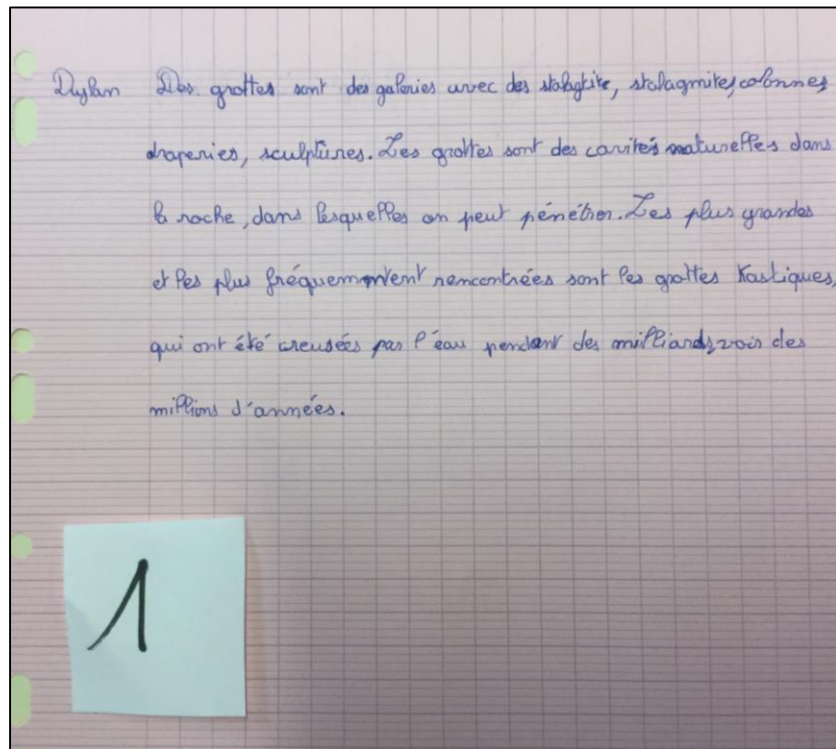 Dylan Des grottes sont des galeries avec des stalagtite, stalagmites, colonnes,
draperies, sculptures. Les grottes sont des cavités naturelles dans
la roche, dans lesquelles on peut pénétrer. Les plus grandes
et les plus fréquemment rencontrées sont les grottes Kastiques,
qui ont été creusées par l'eau pendant des milliards, vois des
millions d'années.
1